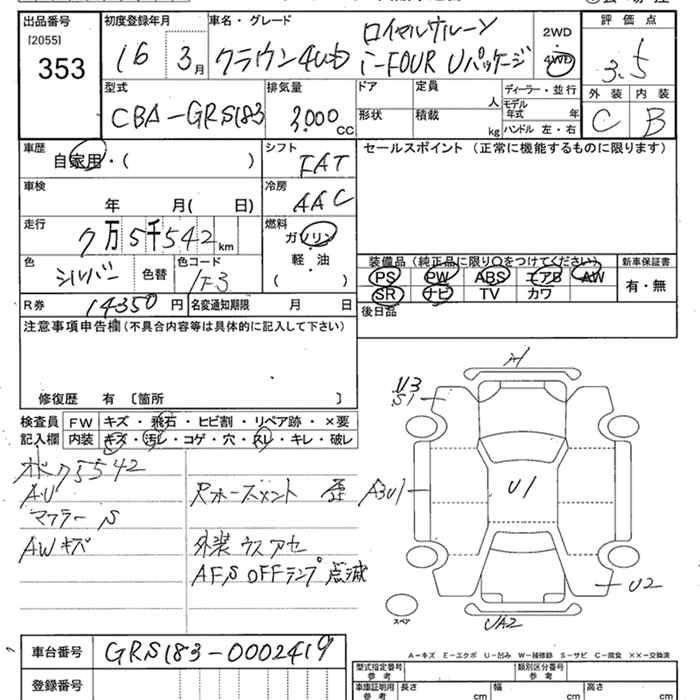 出品番号 初度登録年月 車名・グレード 評価点
[2055]
353 16 3月 クラウン4WD ロイヤルサルーン
i-FOUR Uパッケージ
2WD
4WD
3.5
外装 内装
C B
型式 排気量 ドア 定員 人 ディーラー・並行
CBA-GRS183 3,000cc 形状 積載 kg モデル年式 年
ハンドル 左・右
車歴 シフト セールスポイント (正常に機能するものに限ります)
自家用・( ) FAT
車検 冷房
年 月( 日) AAC
走行 燃料
7万5千542km ガソリン
軽・油
( )
色 色替 色コード
シルバー 1F3
装備品 (純正品に限り○をつけてください) 新車保証書
PS PW ABS エアB AW 有・無
SR ナビ TV カワ
R券 14350円 名変通知期限 月 日
後日品
注意事項申告欄 (不具合内容等は具体的に記入して下さい)
修復歴 有 〔箇所 〕
検査員 FW キズ・飛石・ヒビ割・リペア跡・×要
記入欄 内装 キズ・汚レ・コゲ・穴・スレ・キレ・破レ
75542
AU
マフラー S
AWキズ
Rホースメント 歪
外装 ウスアセ
AFS OFFランプ 点滅
U3
S1
A3U1
U1
U2
UA2
スペア
A-キズ E-エクボ U-凹み W-補修跡 S-サビ C-腐食 ××-交換済
車台番号 GRS183-0002419
登録番号
型式指定番号 参考 類別区分番号 参考
車庫証明用 参考 長さ cm 幅 cm 高さ cm